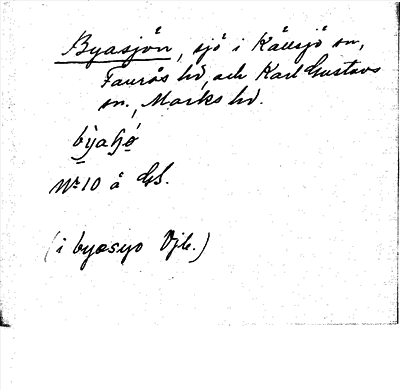 Byasjön, sjö i Källsjö sn,
Faurås hd, och Karl Gustavs
sn., Marks hd.
byaɧø
Nr 10 å GS.
(i byasyo Vjb.)